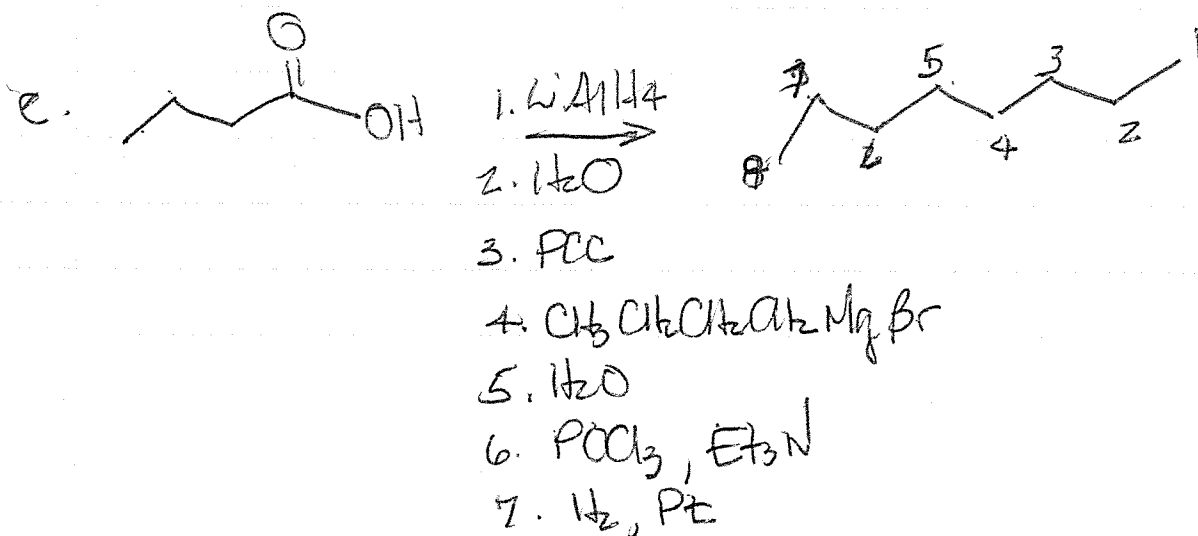 e.
O
OH
1. LiAlH4
2. H2O
3. PCC
4. CH3CH2CH2CH2MgBr
5. H2O
6. POCl3, Et3N
7. H2, Pt
8 7 6 5 4 3 2 1